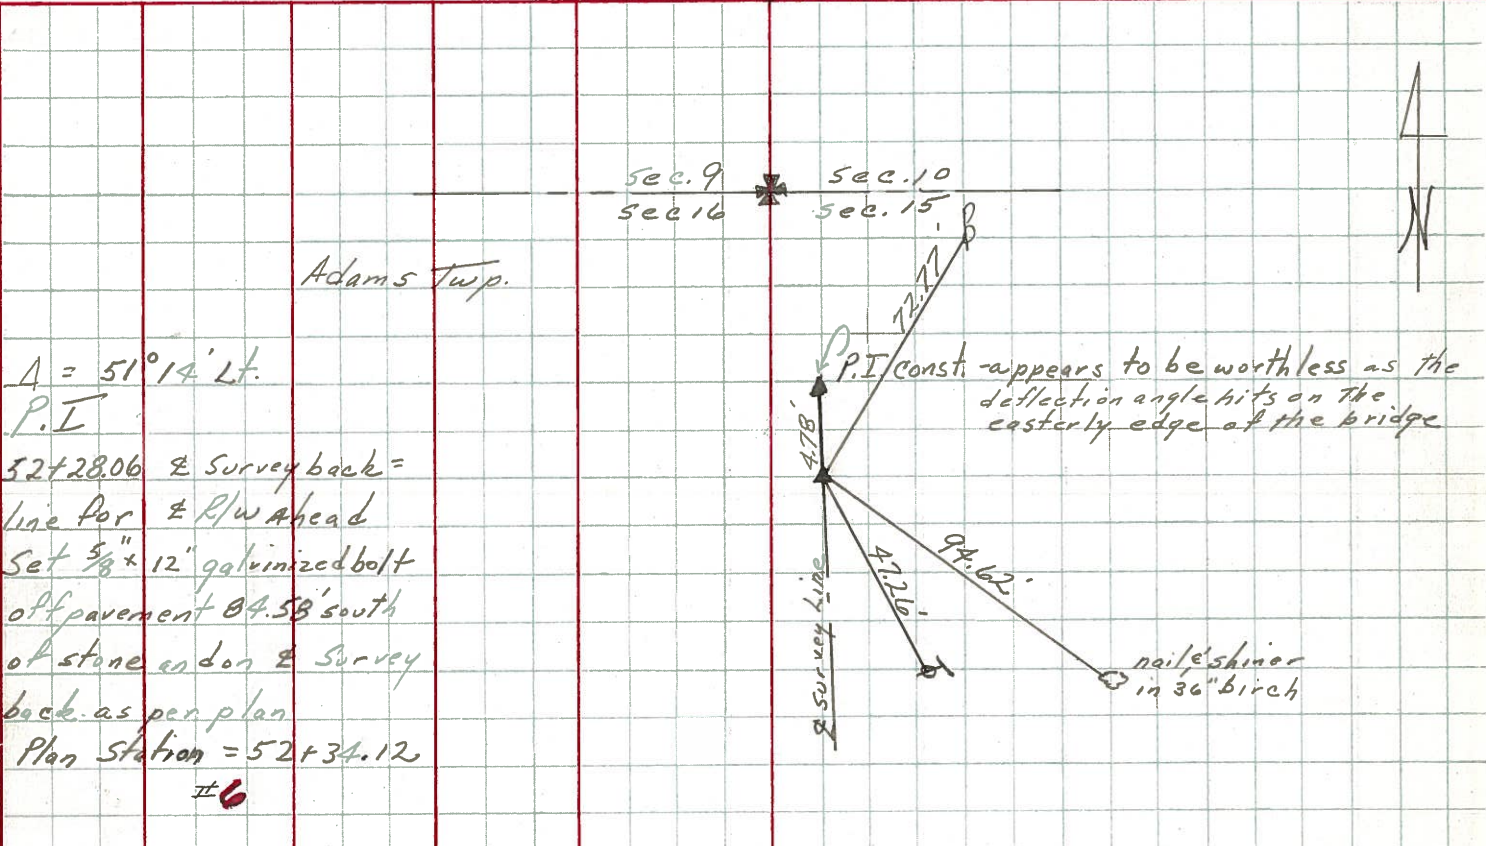 Sec. 9
Sec. 10
Sec 16
Sec. 15
N
Adams Twp.
72.77'
Δ = 51°14' Lt.
P.I
52+28.06 ℄ Survey back =
line for ℄ R/W Ahead
Set 5/8" x 12" galvinized bolt
off pavement 84.58' south
of stone and on ℄ Survey
back as per plan
Plan Station = 52+34.12
#6
P.I. const. - appears to be worthless as the
deflection angle hits on the
easterly edge of the bridge
4.78'
47.26'
94.62'
℄ Survey Line
nail & shiner
in 36" birch